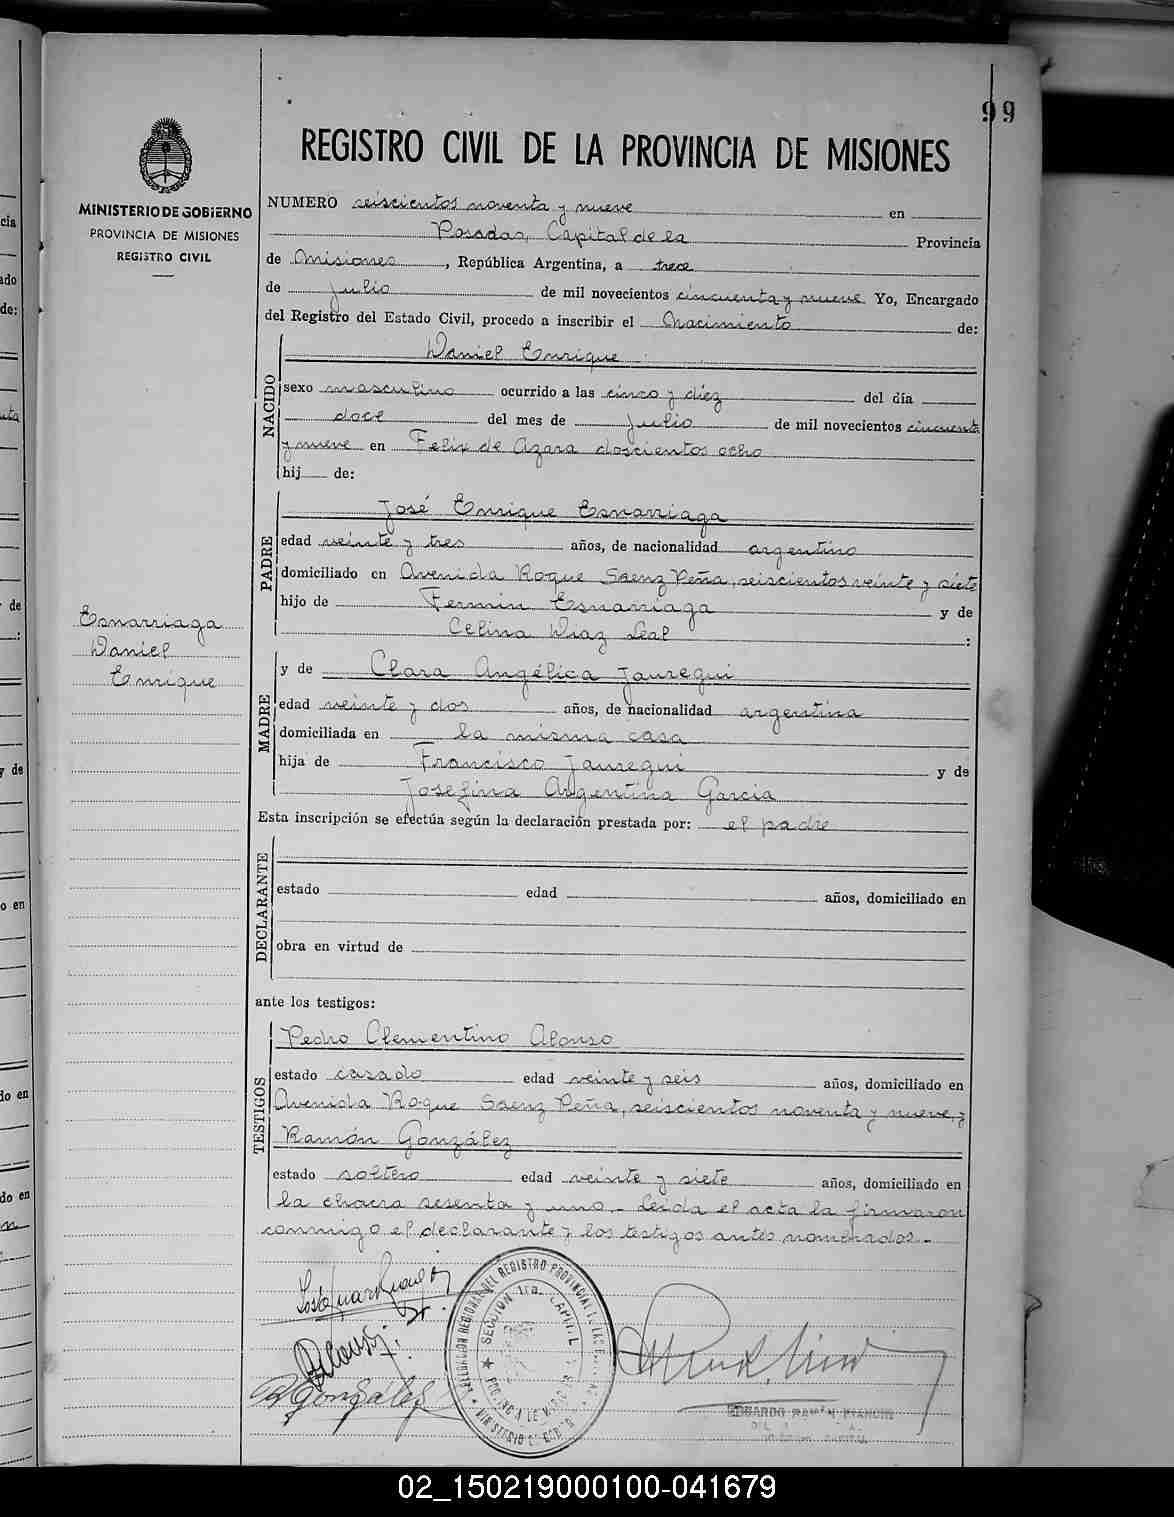 99
REGISTRO CIVIL DE LA PROVINCIA DE MISIONES
MINISTERIO DE GOBIERNO
PROVINCIA DE MISIONES
REGISTRO CIVIL
NUMERO seiscientos noventa y nueve en
Posadas, Capital de la Provincia
de Misiones, República Argentina, a trece
de Julio de mil novecientos cincuenta y nueve Yo, Encargado
del Registro del Estado Civil, procedo a inscribir el Nacimiento de:
NACIDO
Daniel Enrique
sexo masculino ocurrido a las cinco y diez del día
doce del mes de Julio de mil novecientos cincuenta
y nueve en Felix de Azara doscientos ocho
hij de:
PADRE
José Enrique Esnarriaga
edad veinte y tres años, de nacionalidad argentino
domiciliado en Avenida Roque Saenz Peña, seiscientos veinte y siete
hijo de Fermin Esnarriaga y de
Celina Diaz Leal :
Esnarriaga
Daniel
Enrique
MADRE
y de Clara Angélica Jauregui
edad veinte y dos años, de nacionalidad argentina
domiciliada en la misma casa
hija de Francisco Jauregui y de
Josefina Argentina Garcia
Esta inscripción se efectúa según la declaración prestada por: el padre
DECLARANTE
estado edad años, domiciliado en
obra en virtud de
ante los testigos:
TESTIGOS
Pedro Clementino Alonso
estado casado edad veinte y seis años, domiciliado en
Avenida Roque Saenz Peña, seiscientos noventa y nueve, y
Ramón González
estado soltero edad veinte y siete años, domiciliado en
la chacra sesenta y uno.- Leida el acta la firmaron
conmigo el declarante y los testigos antes nombrados.-
PAlonso
RGonzalez
SECCION 1ra. CAPITAL
EDUARDO RAMÓN
02_150219000100-041679